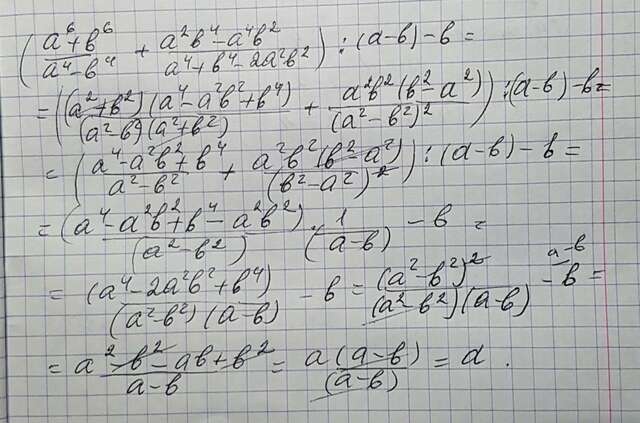 (a⁶+b⁶/a⁴-b⁴ + a²b⁴-a⁴b²/a⁴+b⁴-2a²b²) : (a-b) - b =
= ((a²+b²)(a⁴-a²b²+b⁴)/(a²-b²)(a²+b²) + a²b²(b²-a²)/(a²-b²)²) : (a-b) - b =
= (a⁴-a²b²+b⁴/a²-b² + a²b²(b²-a²)/(b²-a²)²) : (a-b) - b =
= (a⁴-a²b²+b⁴-a²b²)/(a²-b²) · 1/(a-b) - b =
= (a⁴-2a²b²+b⁴)/(a²-b²)(a-b) - b = (a²-b²)²/(a²-b²)(a-b) - b a-b =
= a²-b²-ab+b²/a-b = a(a-b)/(a-b) = a.